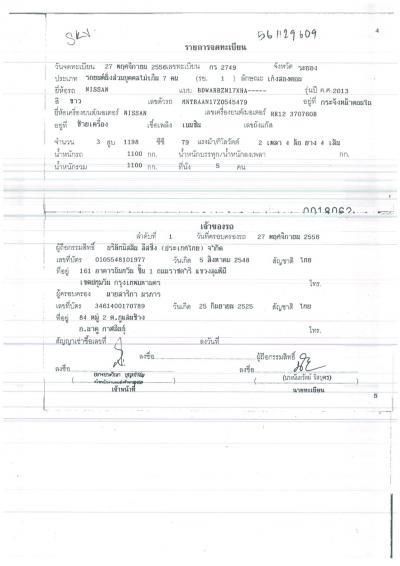 SKV.
561129609
4
รายการจดทะเบียน
วันจดทะเบียน 27 พฤศจิกายน 2556 เลขทะเบียน กร 2749 จังหวัด ระยอง
ประเภท รถยนต์นั่งส่วนบุคคลไม่เกิน 7 คน (รย. 1 ) ลักษณะ เก๋งสองตอน
ยี่ห้อรถ NISSAN แบบ BDWARBZN17XHA----- รุ่นปี ค.ศ.2013
สี ขาว เลขตัวรถ MNTBAAN17Z0545479 อยู่ที่
ยี่ห้อเครื่องยนต์/มอเตอร์ NISSAN เลขเครื่องยนต์/มอเตอร์ HR12 370760B
อยู่ที่ ซ้ายเครื่อง เชื้อเพลิง เบนซิน เลขถังแก๊ส
จำนวน 3 สูบ 1198 ซีซี 79 แรงม้า/กิโลวัตต์ 2 เพลา 4 ล้อ ยาง 4 เส้น
น้ำหนักรถ 1100 กก. น้ำหนักบรรทุก/น้ำหนักลงเพลา กก.
น้ำหนักรวม 1100 กก. ที่นั่ง 5 คน
เจ้าของรถ
ลำดับที่ 1 วันที่ครอบครองรถ 27 พฤศจิกายน 2556
ผู้ถือกรรมสิทธิ์ บริษัทนิสสัน ลีสซิ่ง (ประเทศไทย) จำกัด
เลขที่บัตร 0105548101977 วันเกิด 5 สิงหาคม 2548 สัญชาติ ไทย
ที่อยู่ 161 ชั้น 1 ถนนราชดำริ แขวงลุมพินี
เขตปทุมวัน กรุงเทพมหานคร โทร.
ผู้ครอบครอง นายสาริกา
เลขที่บัตร 3461400170789 วันเกิด 25 กันยายน 2525 สัญชาติ ไทย
ที่อยู่ 84 หมู่ 2
กาฬสินธุ์ โทร.
สัญญาเช่าซื้อเลขที่ ลงวันที่
ลงชื่อ ผู้ถือกรรมสิทธิ์
ลงชื่อ ลงชื่อ
เจ้าหน้าที่ นายทะเบียน
5